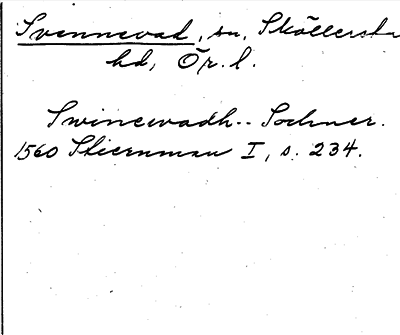 Svennevad, sn, Sköllersta
hd, Ör. l.
Swinewadh-- Sochner.
1560 Stiernman I, s. 234.